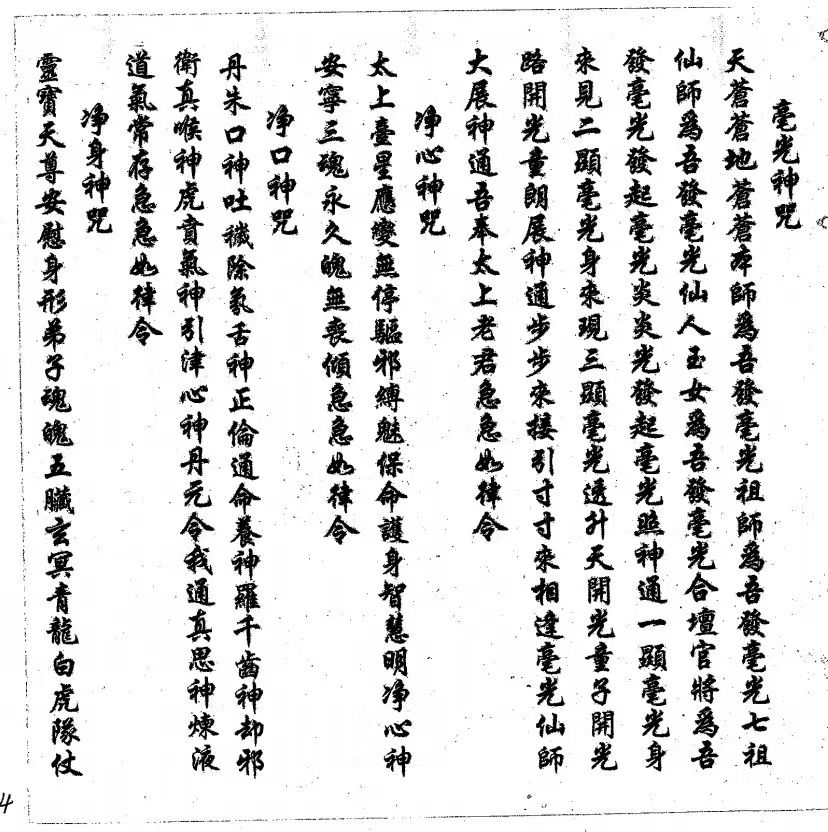 毫光神咒
天蒼蒼地蒼蒼本師爲吾發毫光祖師爲吾發毫光七祖
仙師爲吾發毫光仙人玉女爲吾發毫光合壇官將爲吾
發毫光發起毫光炎炎光發起毫光照神通一顯毫光身
來見二顯毫光身來現三顯毫光透升天開光童子開光
路開光童朗展神通步步來接引寸寸來相逢毫光仙師
大展神通吾奉太上老君急急如律令
净心神咒
太上臺星應變無停驅邪縛魅保命護身智慧明净心神
安寧三魂永久魄無喪傾急急如律令
净口神咒
丹朱口神吐穢除氛舌神正倫通命養神羅千齒神却邪
衛真喉神虎賁氣神引津心神丹元令我通真思神煉液
道氣常存急急如律令
净身神咒
靈寶天尊安慰身形弟子魂魄五臟玄冥青龍白虎隊仗
4